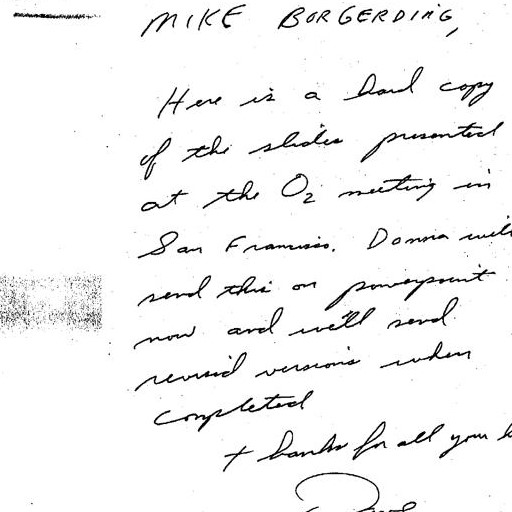 MIKE BORGERDING,
Here is a hard copy
of the slides presented
at the O2 meeting in
San Francisco. Donna will
send this on powerpoint
now and we'll send
revised versions when
completed
Thanks for all your